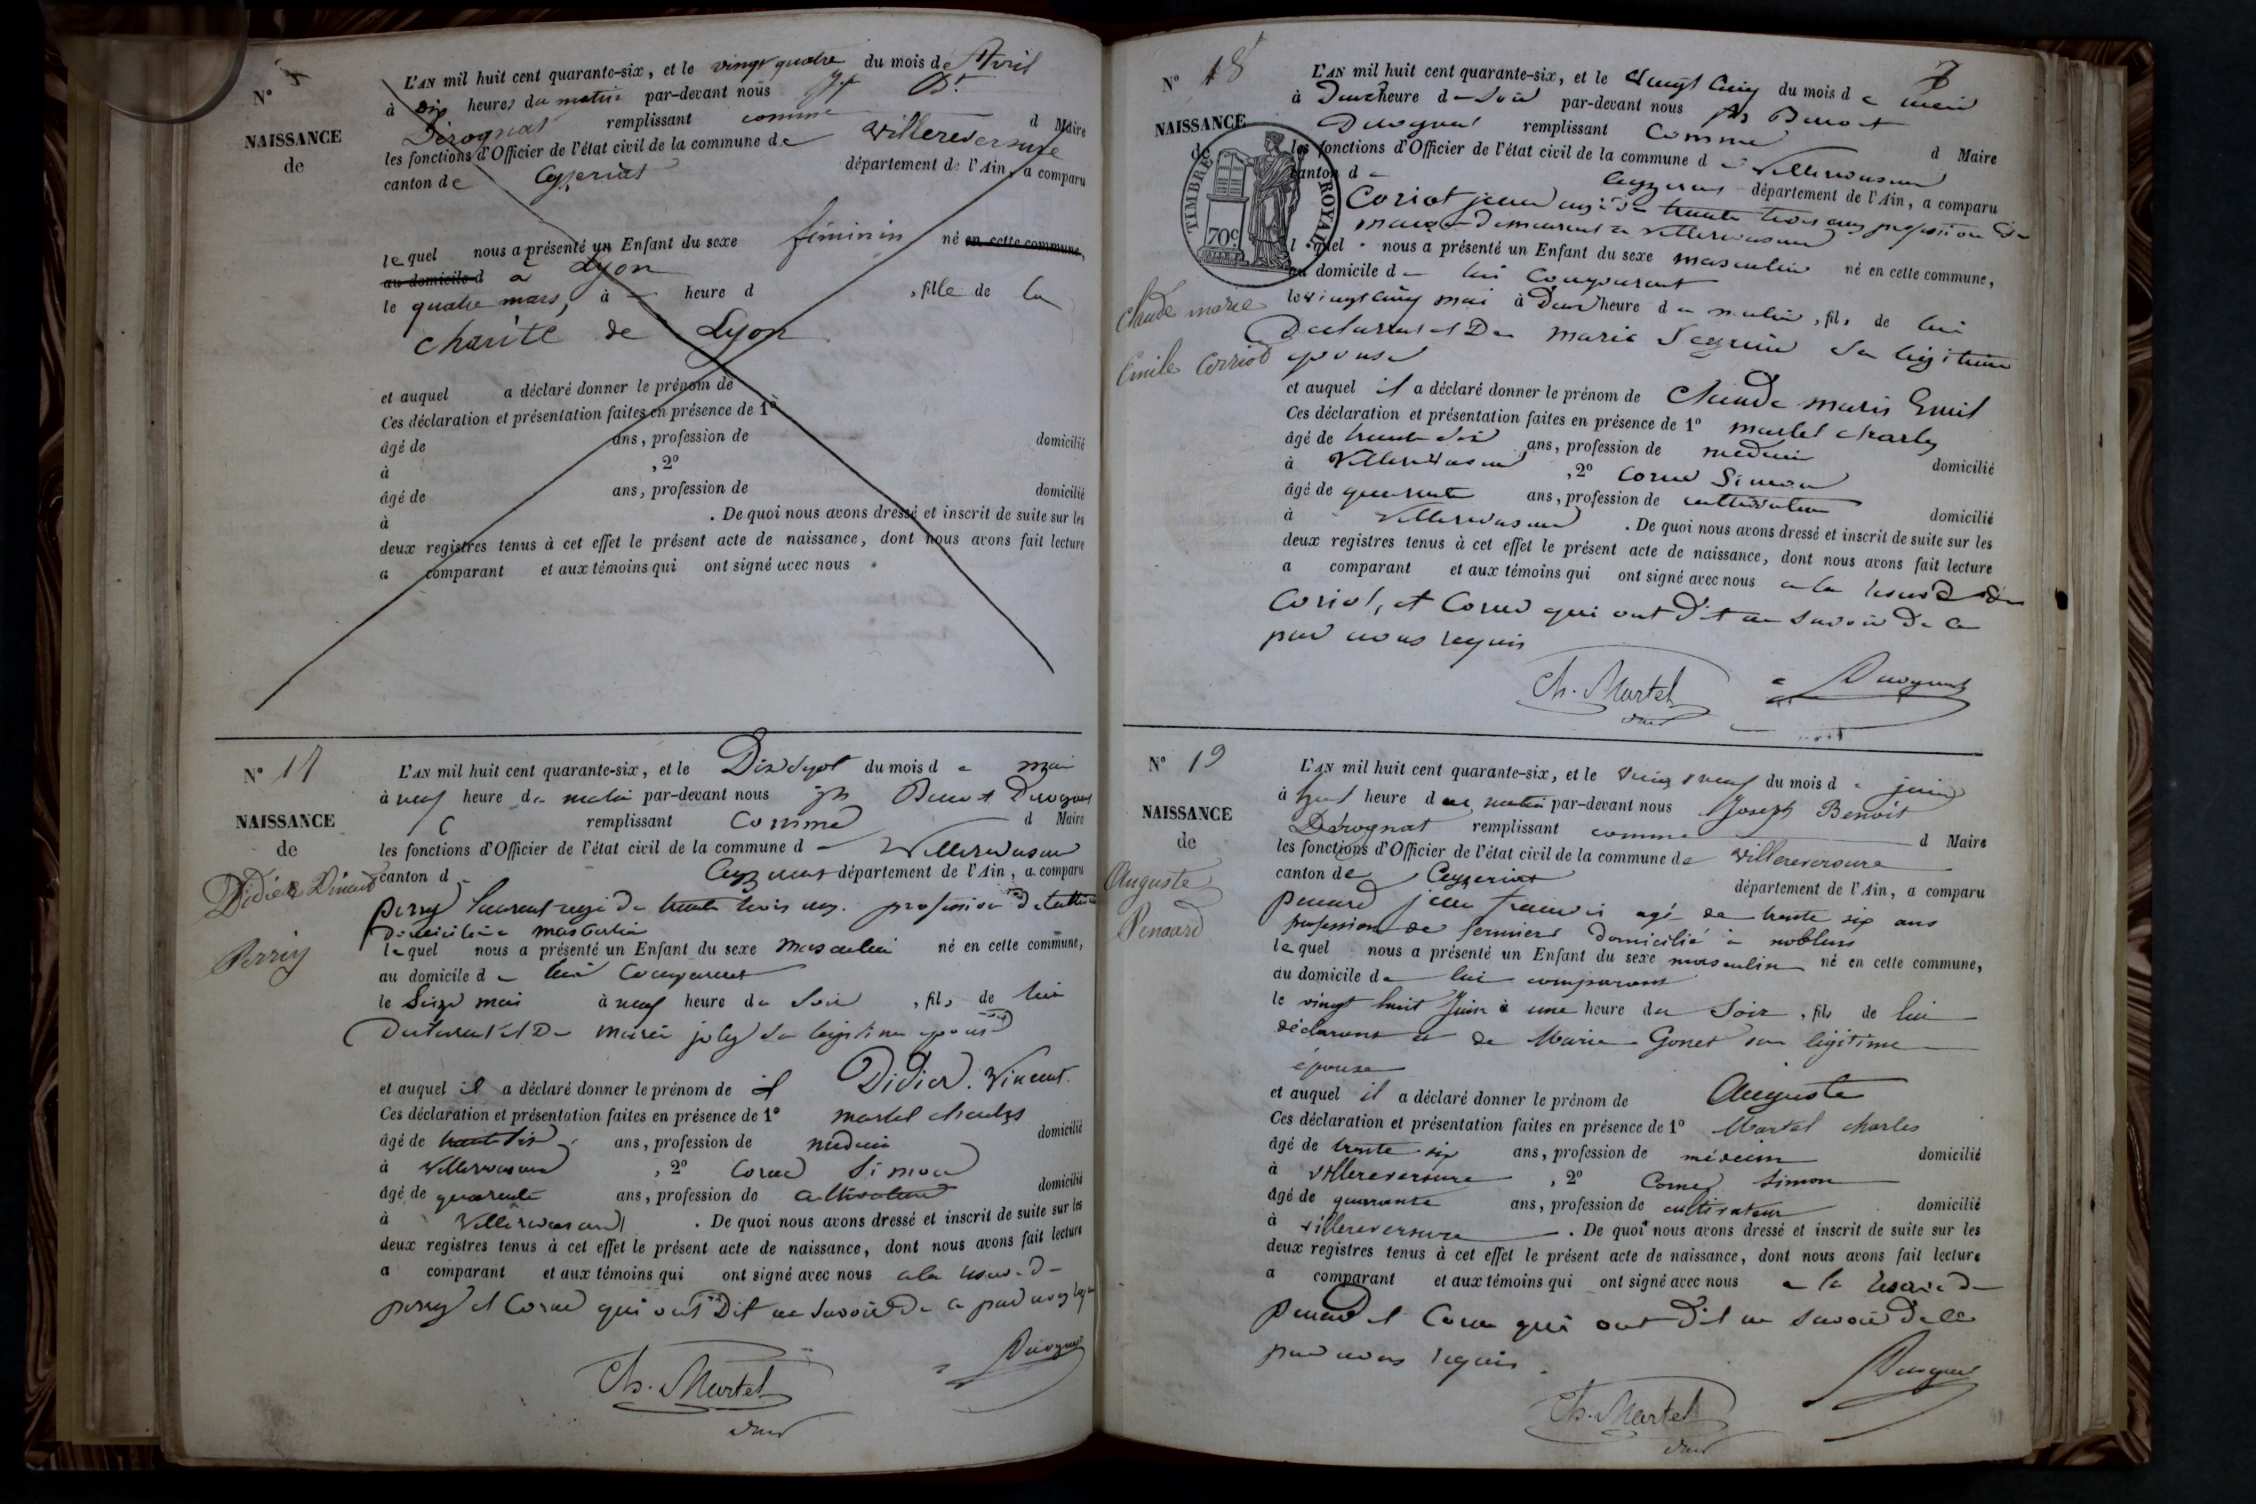 N°
NAISSANCE
de
L'AN mil huit cent quarante-six, et le vingt quatre du mois de Avril
à dix heures du matin par-devant nous Jph Bt
Dirognat remplissant comme d Maire
les fonctions d'Officier de l'état civil de la commune de Villereversure
canton de Ceyzeriat département de l'Ain, a comparu
lequel nous a présenté un Enfant du sexe féminin né en cette commune,
au domicile d à Lyon
le quatre mars, à heure d , fille de la
charité de Lyon
et auquel a déclaré donner le prénom de
Ces déclaration et présentation faites en présence de 1°
âgé de ans, profession de domicilié
à , 2°
âgé de ans, profession de domicilié
à . De quoi nous avons dressé et inscrit de suite sur les
deux registres tenus à cet effet le présent acte de naissance, dont nous avons fait lecture
a comparant et aux témoins qui ont signé avec nous
N° 17
NAISSANCE
de
Didier Vincent
Perrin
L'AN mil huit cent quarante-six, et le Dix Sept du mois d e mai
à neuf heure du matin par-devant nous jph Benoit Dirognat
remplissant comme d Maire
les fonctions d'Officier de l'état civil de la commune d e Villereversure
canton d e Ceyzeriat département de l'Ain, a comparu
agé de trente trois ans. profession de
lequel nous a présenté un Enfant du sexe masculin né en cette commune,
au domicile d e lui comparant
le Seize mai à neuf heure du Soir , fils de lui
Declarant et De marie joly sa legitime epouse
et auquel il a déclaré donner le prénom de Didier. Vincent.
Ces déclaration et présentation faites en présence de 1° martel charles
âgé de trente six ans, profession de medecin domicilié
à Villereversure , 2° Cornu Simon
âgé de quarente ans, profession de cultivateur domicilié
à Villereversure . De quoi nous avons dressé et inscrit de suite sur les
deux registres tenus à cet effet le présent acte de naissance, dont nous avons fait lecture
a comparant et aux témoins qui ont signé avec nous a la
et Cornu qui ont Dit ne Savoir De ce par nous
Ch. Martel Dirognat
N° 18
NAISSANCE
de
TIMBRE ROYAL
70c
Claude marie
Emile Corriot
7
L'AN mil huit cent quarante-six, et le Vingt Cinq du mois d e mai
à Deux heure d u Soir par-devant nous jph Benoit
Dirognat remplissant Comme d Maire
les fonctions d'Officier de l'état civil de la commune d e Villereversure
canton d e Ceyzeriat département de l'Ain, a comparu
Coriot jean agé de trente trois ans profession de
demeurant a Villereversure
lequel nous a présenté un Enfant du sexe masculin né en cette commune,
au domicile d e lui Comparant
le vingt cinq mai à Deux heure d u matin , fils de lui
Declarant et De marie Seguin Sa legitime
epouse
et auquel il a déclaré donner le prénom de Claude marie Emil
Ces déclaration et présentation faites en présence de 1° martel charles
âgé de trente six ans, profession de medecin domicilié
à Villereversure , 2° Cornu Simon
âgé de quarente ans, profession de cultivateur domicilié
à Villereversure . De quoi nous avons dressé et inscrit de suite sur les
deux registres tenus à cet effet le présent acte de naissance, dont nous avons fait lecture
a comparant et aux témoins qui ont signé avec nous a la
Coriot, et Cornu qui ont Dit ne Savoir De ce
par nous requis
Ch. Martel Dirognat
N° 19
NAISSANCE
de
Auguste
Penaard
L'AN mil huit cent quarante-six, et le vingt neuf du mois d e juin
à heure du matin par-devant nous Joseph Benoît
Dirognat remplissant comme d Maire
les fonctions d'Officier de l'état civil de la commune de Villereversure
canton de Ceyzeriat département de l'Ain, a comparu
jean francois agé de trente six ans
profession de fermier domicilié à noblens
lequel nous a présenté un Enfant du sexe masculin né en cette commune,
au domicile de lui comparant
le vingt huit Juin à une heure du Soir , fils de lui
déclarant et de Marie Gonet sa légitime
épouse
et auquel il a déclaré donner le prénom de Auguste
Ces déclaration et présentation faites en présence de 1° Martel charles
âgé de trente six ans, profession de médecin domicilié
à villereversure , 2° Cornu Simon
âgé de quarante ans, profession de cultivateur domicilié
à villereversure . De quoi nous avons dressé et inscrit de suite sur les
deux registres tenus à cet effet le présent acte de naissance, dont nous avons fait lecture
a comparant et aux témoins qui ont signé avec nous a la
et Cornu qui ont Dit ne Savoir De ce
par nous requis
Ch. Martel Dirognat